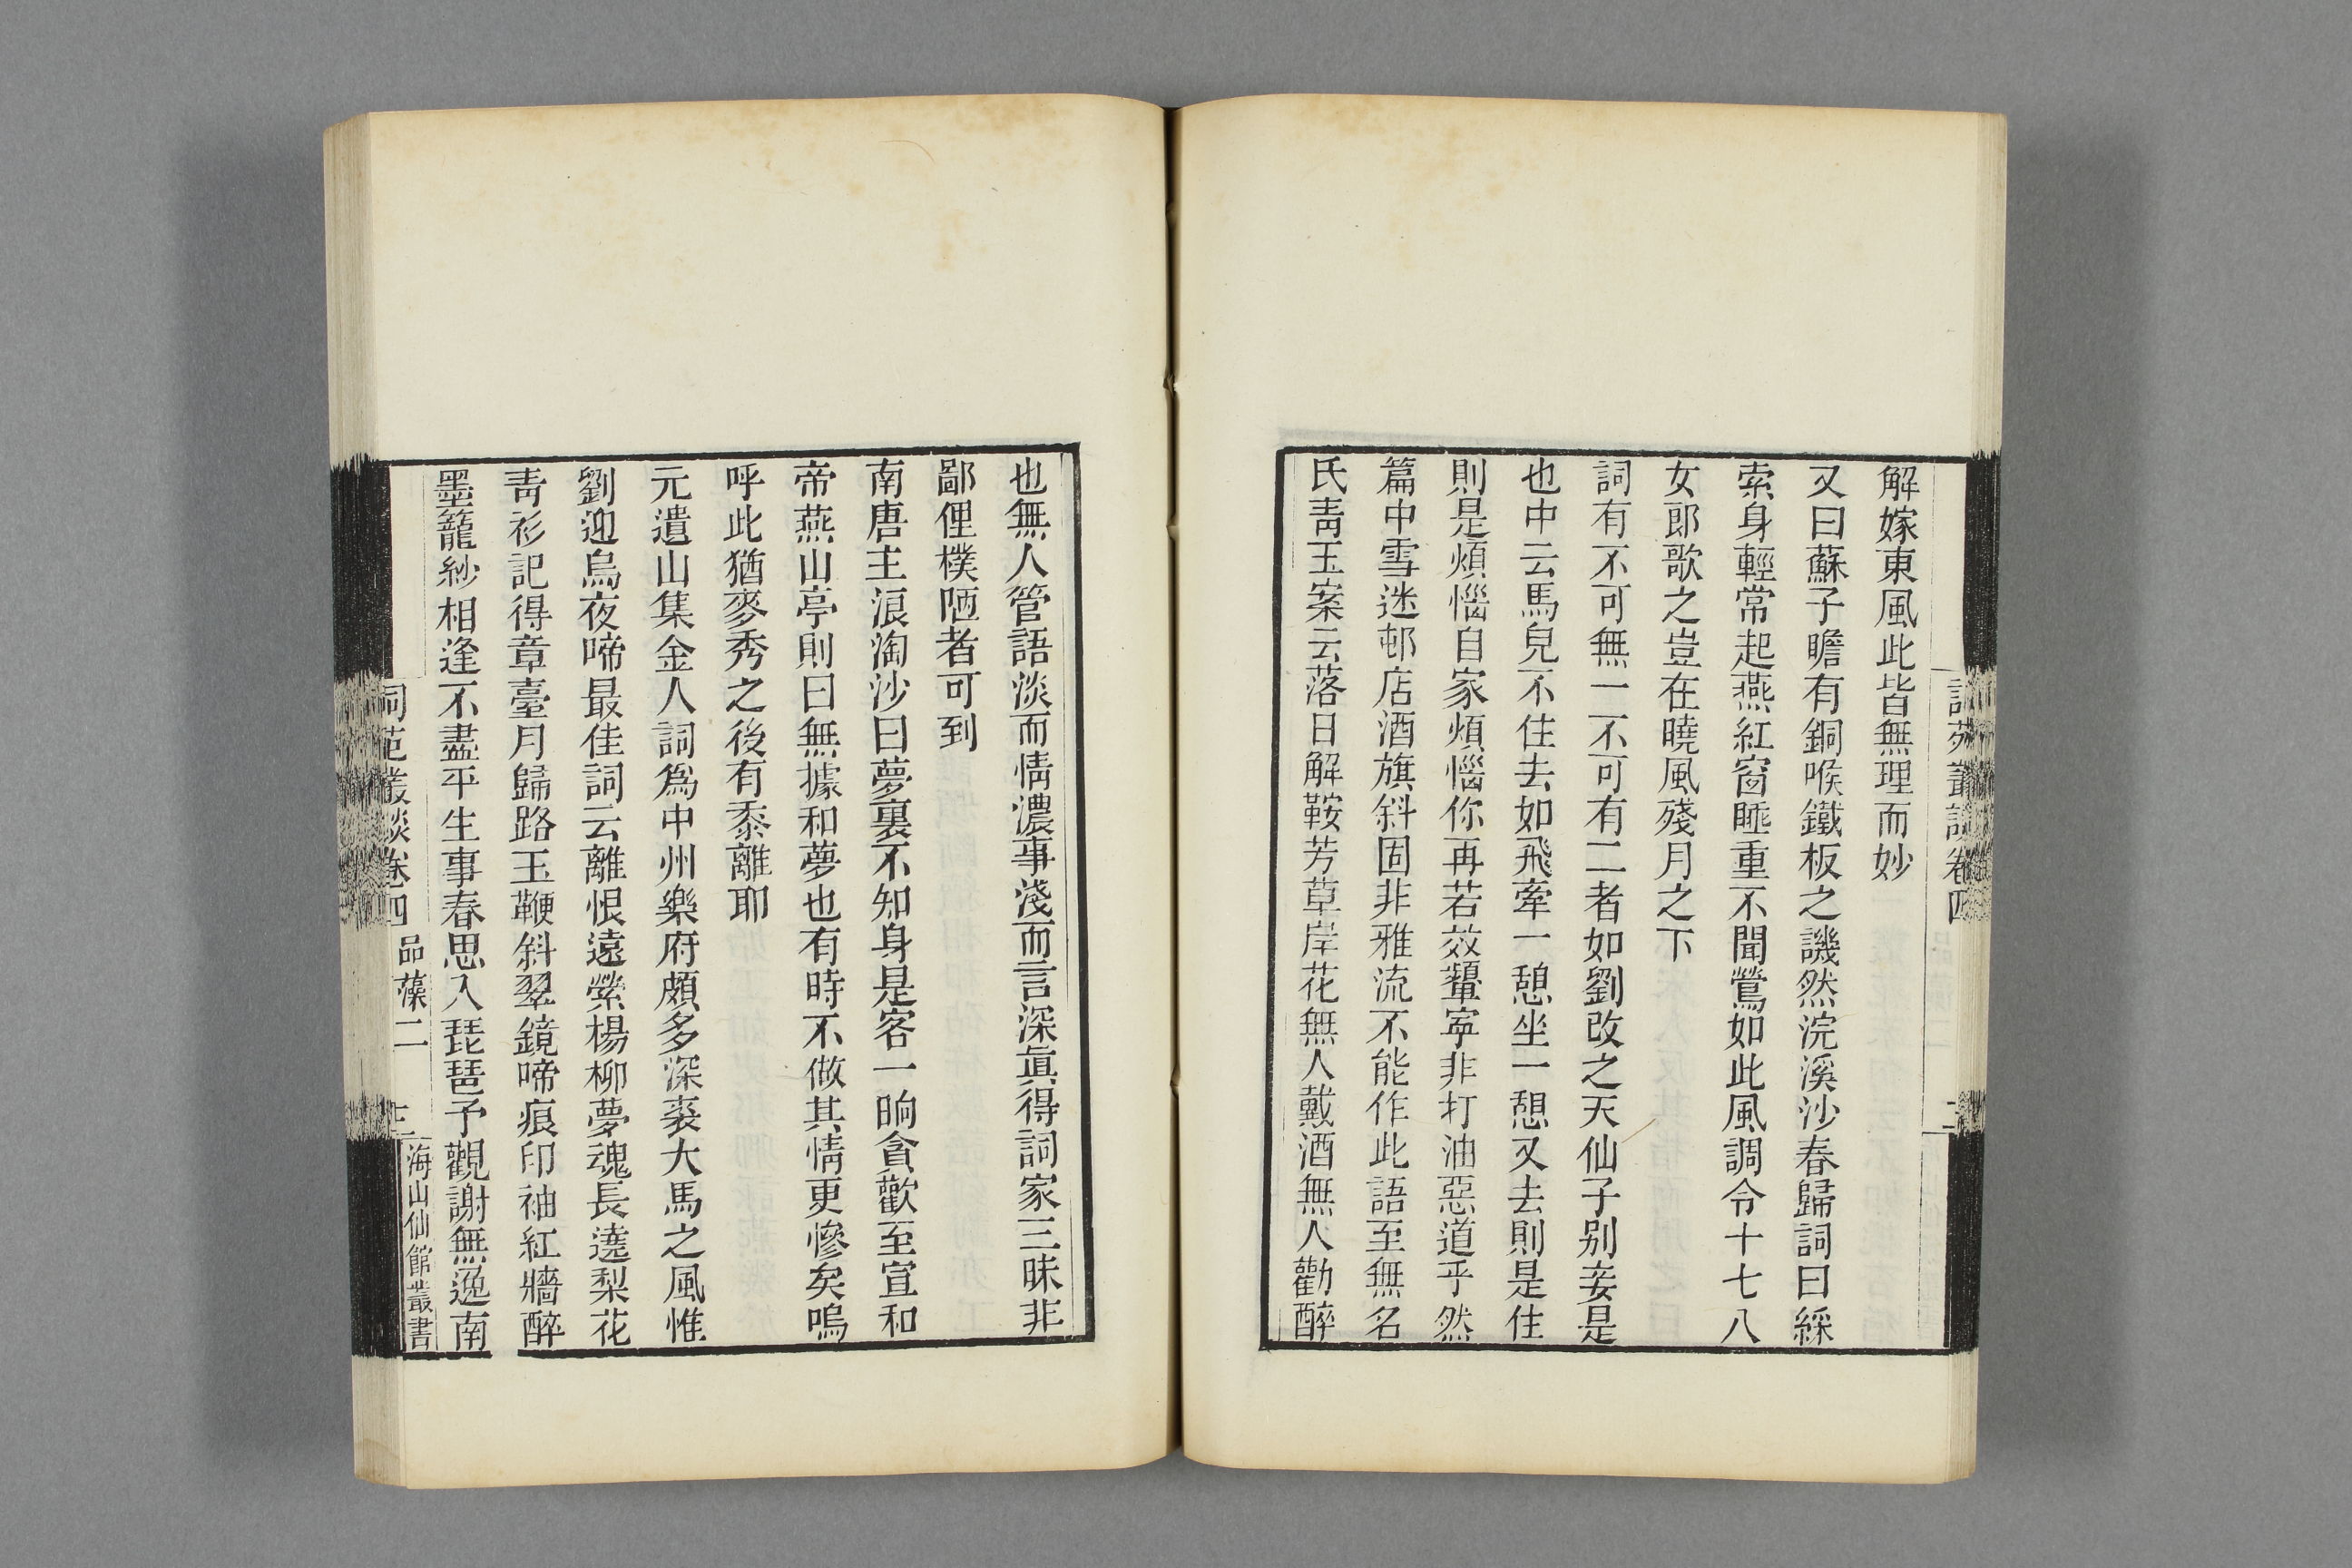 解嫁東風此皆無理而妙
又曰蘇子瞻有銅喉鐵板之譏然浣溪沙春歸詞曰綵
索身輕常起燕紅窗睡重不聞鶯如此風調令十七八
女郎歌之豈在曉風殘月之下
詞有不可無一不可有二者如劉改之天仙子別妾是
也中云馬兒不住去如飛牽一憩坐一憩又去則是住
則是煩惱自家煩惱你再若效顰寧非打油惡道乎然
篇中雪迷邨店酒旗斜固非雅流不能作此語至無名
氏青玉案云落日解鞍芳草岸花無人戴酒無人勸醉
也無人管語淡而情濃事淺而言深眞得詞家三昧非
鄙俚樸陋者可到
南唐主浪淘沙曰夢裏不知身是客一晌貪歡至宣和
帝燕山亭則曰無據和夢也有時不做其情更慘矣嗚
呼此猶麥秀之後有黍離耶
元遺山集金人詞為中州樂府頗多深裘大馬之風惟
劉迎烏夜啼最佳詞云離恨遠縈楊柳夢魂長遶梨花
青衫記得章臺月歸路玉鞭斜翠鏡啼痕印袖紅牆醉
墨籠紗相逢不盡平生事春思入琵琶予觀謝無逸南
詞苑叢談卷四 品藻二 三 海山仙館叢書